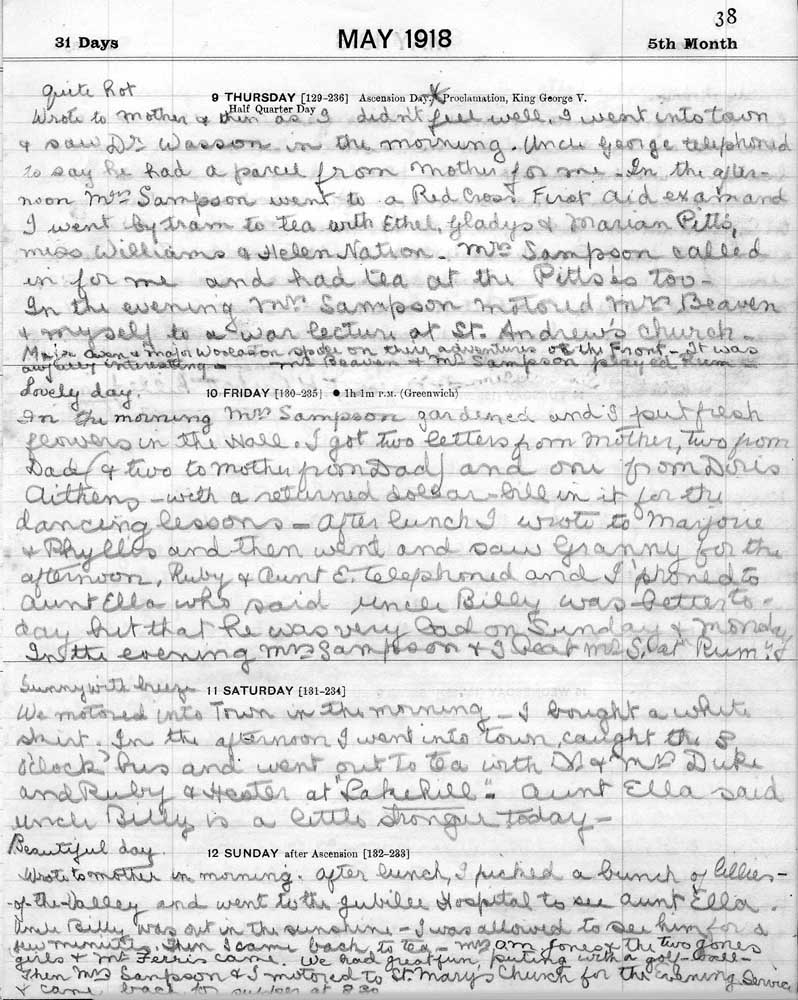 38
31 Days MAY 1918 5th Month
Quite hot
9 THURSDAY [129-236] Ascension Day. Proclamation, King George V.
Half Quarter Day
Wrote to Mother & then as I didn't feel well, I went into town
& saw Dr Wasson in the morning. Uncle George telephoned
to say he had a parcel from Mother for me. In the after-
noon Mrs Sampson went to a Red Cross First Aid exam and
I went by tram to tea with Ethel, Gladys & Marian Pitts,
Miss Williams & Helen Nation. Mrs Sampson called
in for me and had tea at the Pitts's too -
In the evening Mr Sampson motored Mrs Beaven
& myself to a war lecture at St. Andrew's Church -
Major & Major spoke on their adventures at the Front - It was
awfully interesting - Mr Beaven & Mrs Sampson played Rum -
Lovely day.
10 FRIDAY [130-235] ● 1h 1m P.M. (Greenwich)
In the morning Mrs Sampson gardened and I put fresh
flowers in the Hall. I got two letters from Mother, two from
Dad (& two to Mother from Dad) and one from Doris
Aitkens - with a returned dollar-bill in it for the
dancing lessons - After lunch I wrote to Marjorie
& Phyllis and then went and saw Granny for the
afternoon, Ruby & Aunt E. telephoned and I 'phoned to
Aunt Ella who said Uncle Billy was better to-
day but that he was very bad on Sunday & Monday
In the evening Mrs Sampson & I beat Mr S. at Rum
Sunny with breeze
11 SATURDAY [131-234]
We motored into Town in the morning - I bought a white
skirt. In the afternoon I went into town, caught the 3
o'clock bus and went out to tea with Dr & Mrs Duke
and Ruby & Hester at "Lakehill". Aunt Ella said
Uncle Billy is a little stronger today -
Beautiful day.
12 SUNDAY after Ascension [132-233]
Wrote to Mother in morning. After lunch, I picked a bunch of lillies-
of-the-Valley and went to the Jubilee Hospital to see Aunt Ella.
Uncle Billy was out in the sunshine - I was allowed to see him for a
few minutes. Then I came back to tea - Mrs Am. Jones & the two Jones
girls & Mr Ferris came. We had great fun, putting with a golf-ball -
Then Mrs Sampson & I motored to St. Mary's Church for the evening Service
& came back to supper at 8.30